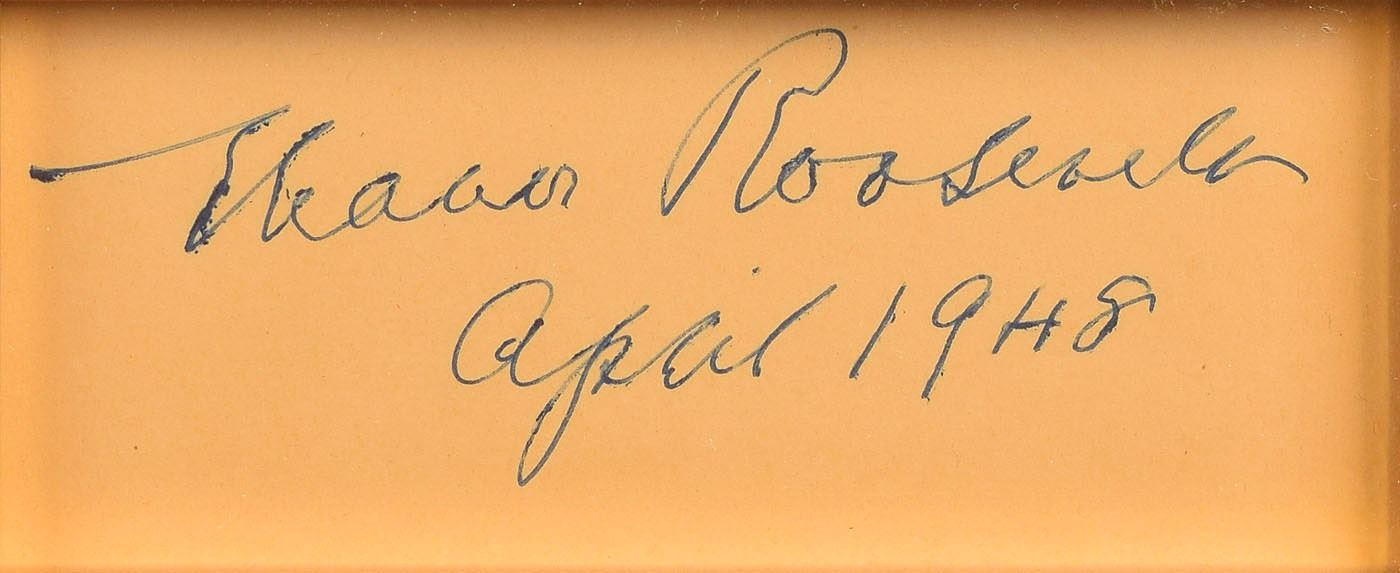 Eleanor Roosevelt
April 1948